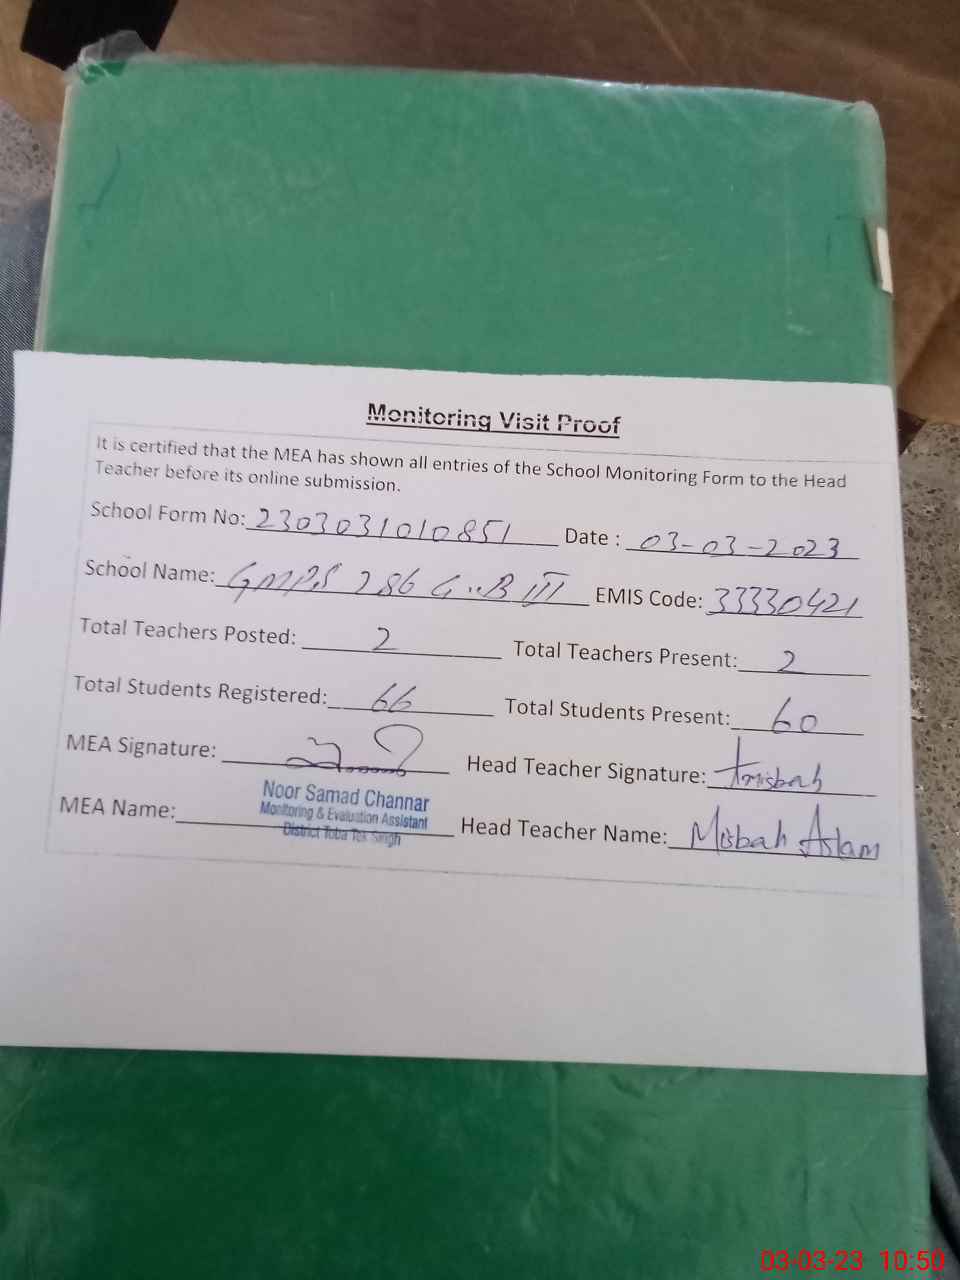 Monitoring Visit Proof
It is certified that the MEA has shown all entries of the School Monitoring Form to the Head
Teacher before its online submission.
School Form No: 2303031010851 Date : 03-03-2023
School Name: GMPS 286 G..B III EMIS Code: 33330421
Total Teachers Posted: 2 Total Teachers Present: 2
Total Students Registered: 66 Total Students Present: 60
MEA Signature: Head Teacher Signature: Amisbah
MEA Name: Noor Samad Channar Head Teacher Name: Misbah Aslam
Monitoring & Evaluation Assistant
District Toba Tek Singh
03-03-23 10:50